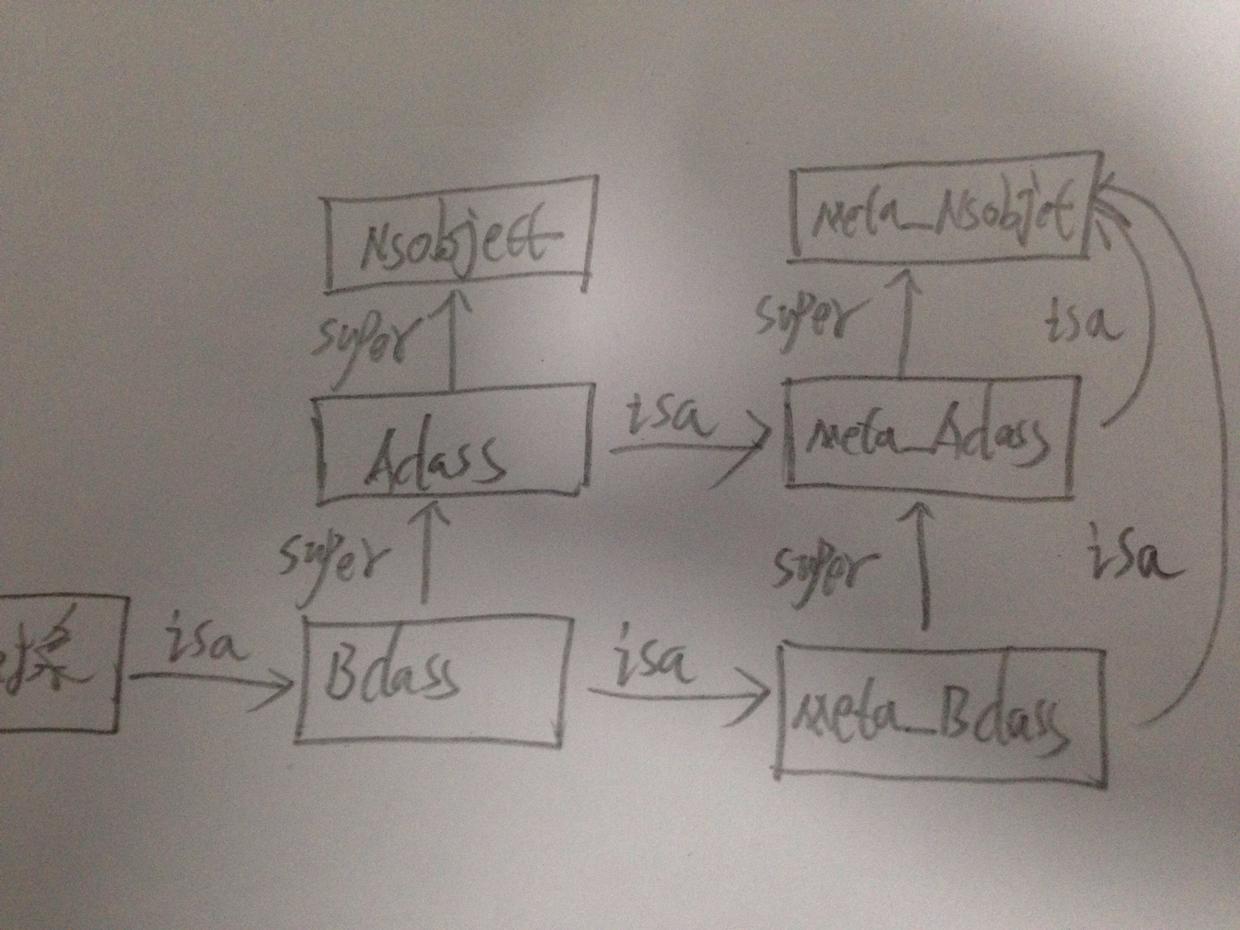 Nsobject
meta_Nsobjet
super
super
isa
Aclass
isa
meta_Aclass
super
super
isa
isa
Bclass
isa
meta_Bclass